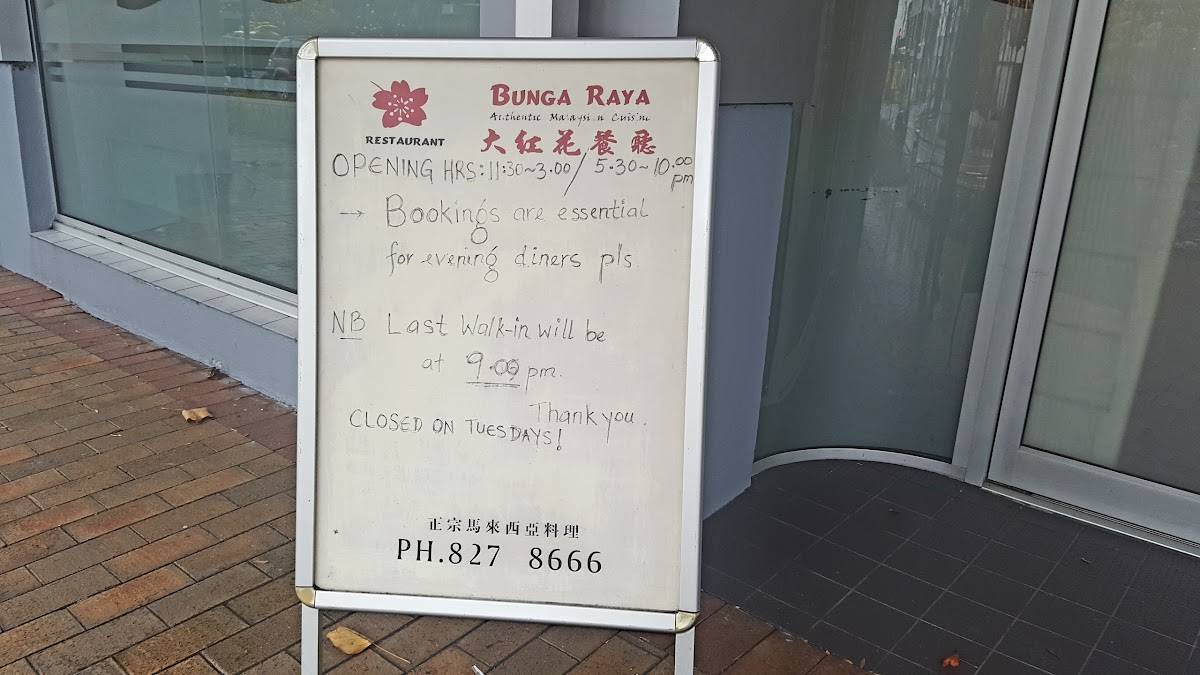 BUNGA RAYA
Authentic Malaysian Cuisine
RESTAURANT
大紅花餐廳
OPENING HRS: 11:30~3.00 / 5.30~10.00 pm
→ Bookings are essential
for evening diners pls
NB Last Walk-in will be
at 9.00 pm.
Thank you.
CLOSED ON TUESDAYS!
正宗馬來西亞料理
PH.827 8666